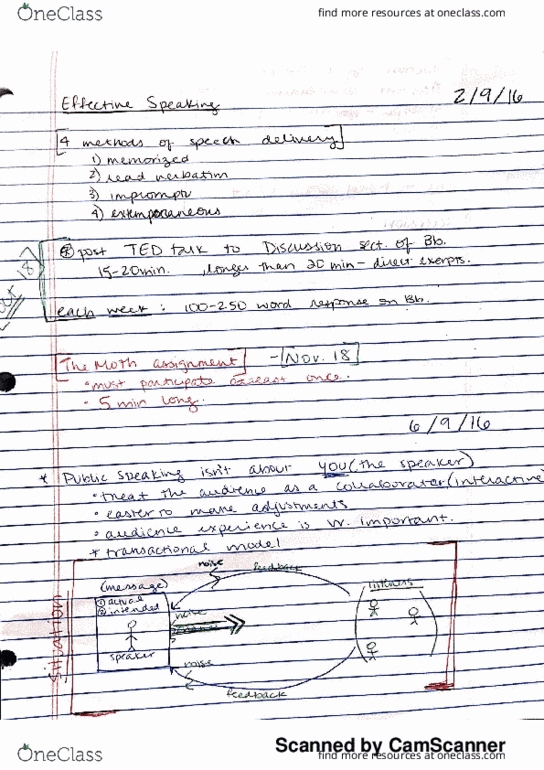 OneClass
find more resources at oneclass.com
Effective Speaking
2/9/16
4 methods of speech delivery
1) memorized
2) read verbatim
3) impromptu
4) extemporaneous
post TED talk to Discussion sect. of Bb.
15-20min. longer than 20 min - direct exerpts.
each week: 100-250 word response on Bb.
The Moth assignment - Nov. 18
• must participate atleast once.
• 5 min long.
6/9/16
* Public speaking isn't about you (the speaker)
• treat the audience as a collaborator (interactive)
• easier to make adjustments
• audience experience is v. important.
* transactional model
noise
feedback
(message)
① actual
② intended
noise
speaker
noise
feedback
situation
Scanned by CamScanner
OneClass
find more resources at oneclass.com